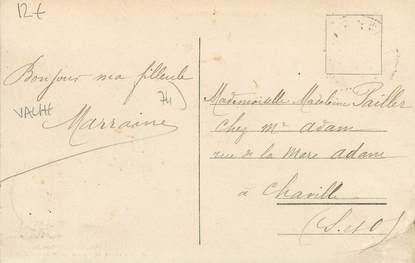 12€
Bonjour ma filleule
74
VACHE
Marraine
Mademoiselle Madeleine Pailler
chez Mr adam
rue de la Mare adam
à Chaville
(S. et O.)